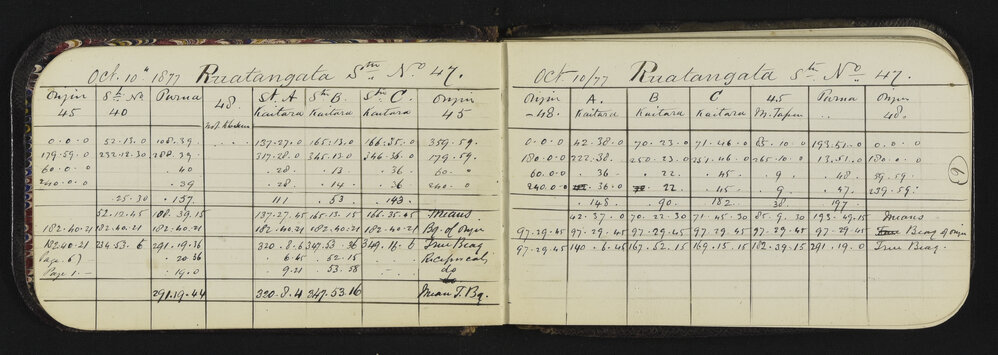 Oct. 10th 1877 Ruatangata Stn. No. 47.
Origin 45 | Stn No 40 | Parua | 48. | St. A Kaitara | Stn B. Kaitara | Stn C. Kaitara | Origin 45
0.0.0 | 52.13.0 | 108.39. | 137.27.0 | 165.13.0 | 166.35.0 | 359.59.
179.59.0 | 232.12.30 | 288.39. | 317.28.0 | 345.13.0 | 346.36.0 | 179.59.
60.0.0 | .40 | .28. | .13. | .36 | 60.0
240.0.0 | .39 | .28. | .14. | .36 | 240.0
.25.30 | .157. | 111 | .53 | .143.
52.12.45 | 108.39.15 | 137.27.45 | 165.13.15 | 166.35.45 | Means
182.40.21 | 182.40.21 | 182.40.21 | 182.40.21 | 182.40.21 | 182.40.21 | Bg. of Origin
182.40.21 | 234.53.6 | 291.19.36 | 320.8.6 | 347.53.36 | 349.16.6 | True Bearg
Page 6) | 20.36 | 6.45 | 52.15 | Reciprocals
Page 1. | 19.0 | 9.21 | 53.58 | do
291.19.44 | 320.8.4 | 347.53.16 | Mean T. Bg.
Oct 10/77 Ruatangata Stn. No 47.
Origin 48. | A. Kaitara | B Kaitara | C Kaitara | 45 | Parua | Origin 48.
0.0.0 | 42.38.0 | 70.23.0 | 71.46.0 | 85.10.0 | 193.51.0 | 0.0.0
180.0.0 | 222.38. | 250.23.0 | 251.46.0 | 265.10.0 | 13.51.0 | 180.0.0
60.0.0 | .36 | .22. | .45. | .9 | .48 | 59.59.
240.0.0 | .36.0 | .22 | .45. | .9 | .47. | 239.59.
.148. | .90. | 182. | 38. | 197
42.37.0 | 70.22.30 | 71.45.30 | 85.9.30 | 193.49.15 | Means
97.29.45 | 97.29.45 | 97.29.45 | 97.29.45 | 97.29.45 | 97.29.45 | Bearg of Origin
97.29.45 | 140.6.45 | 167.52.15 | 169.15.15 | 182.39.15 | 291.19.0 | True Bearg.